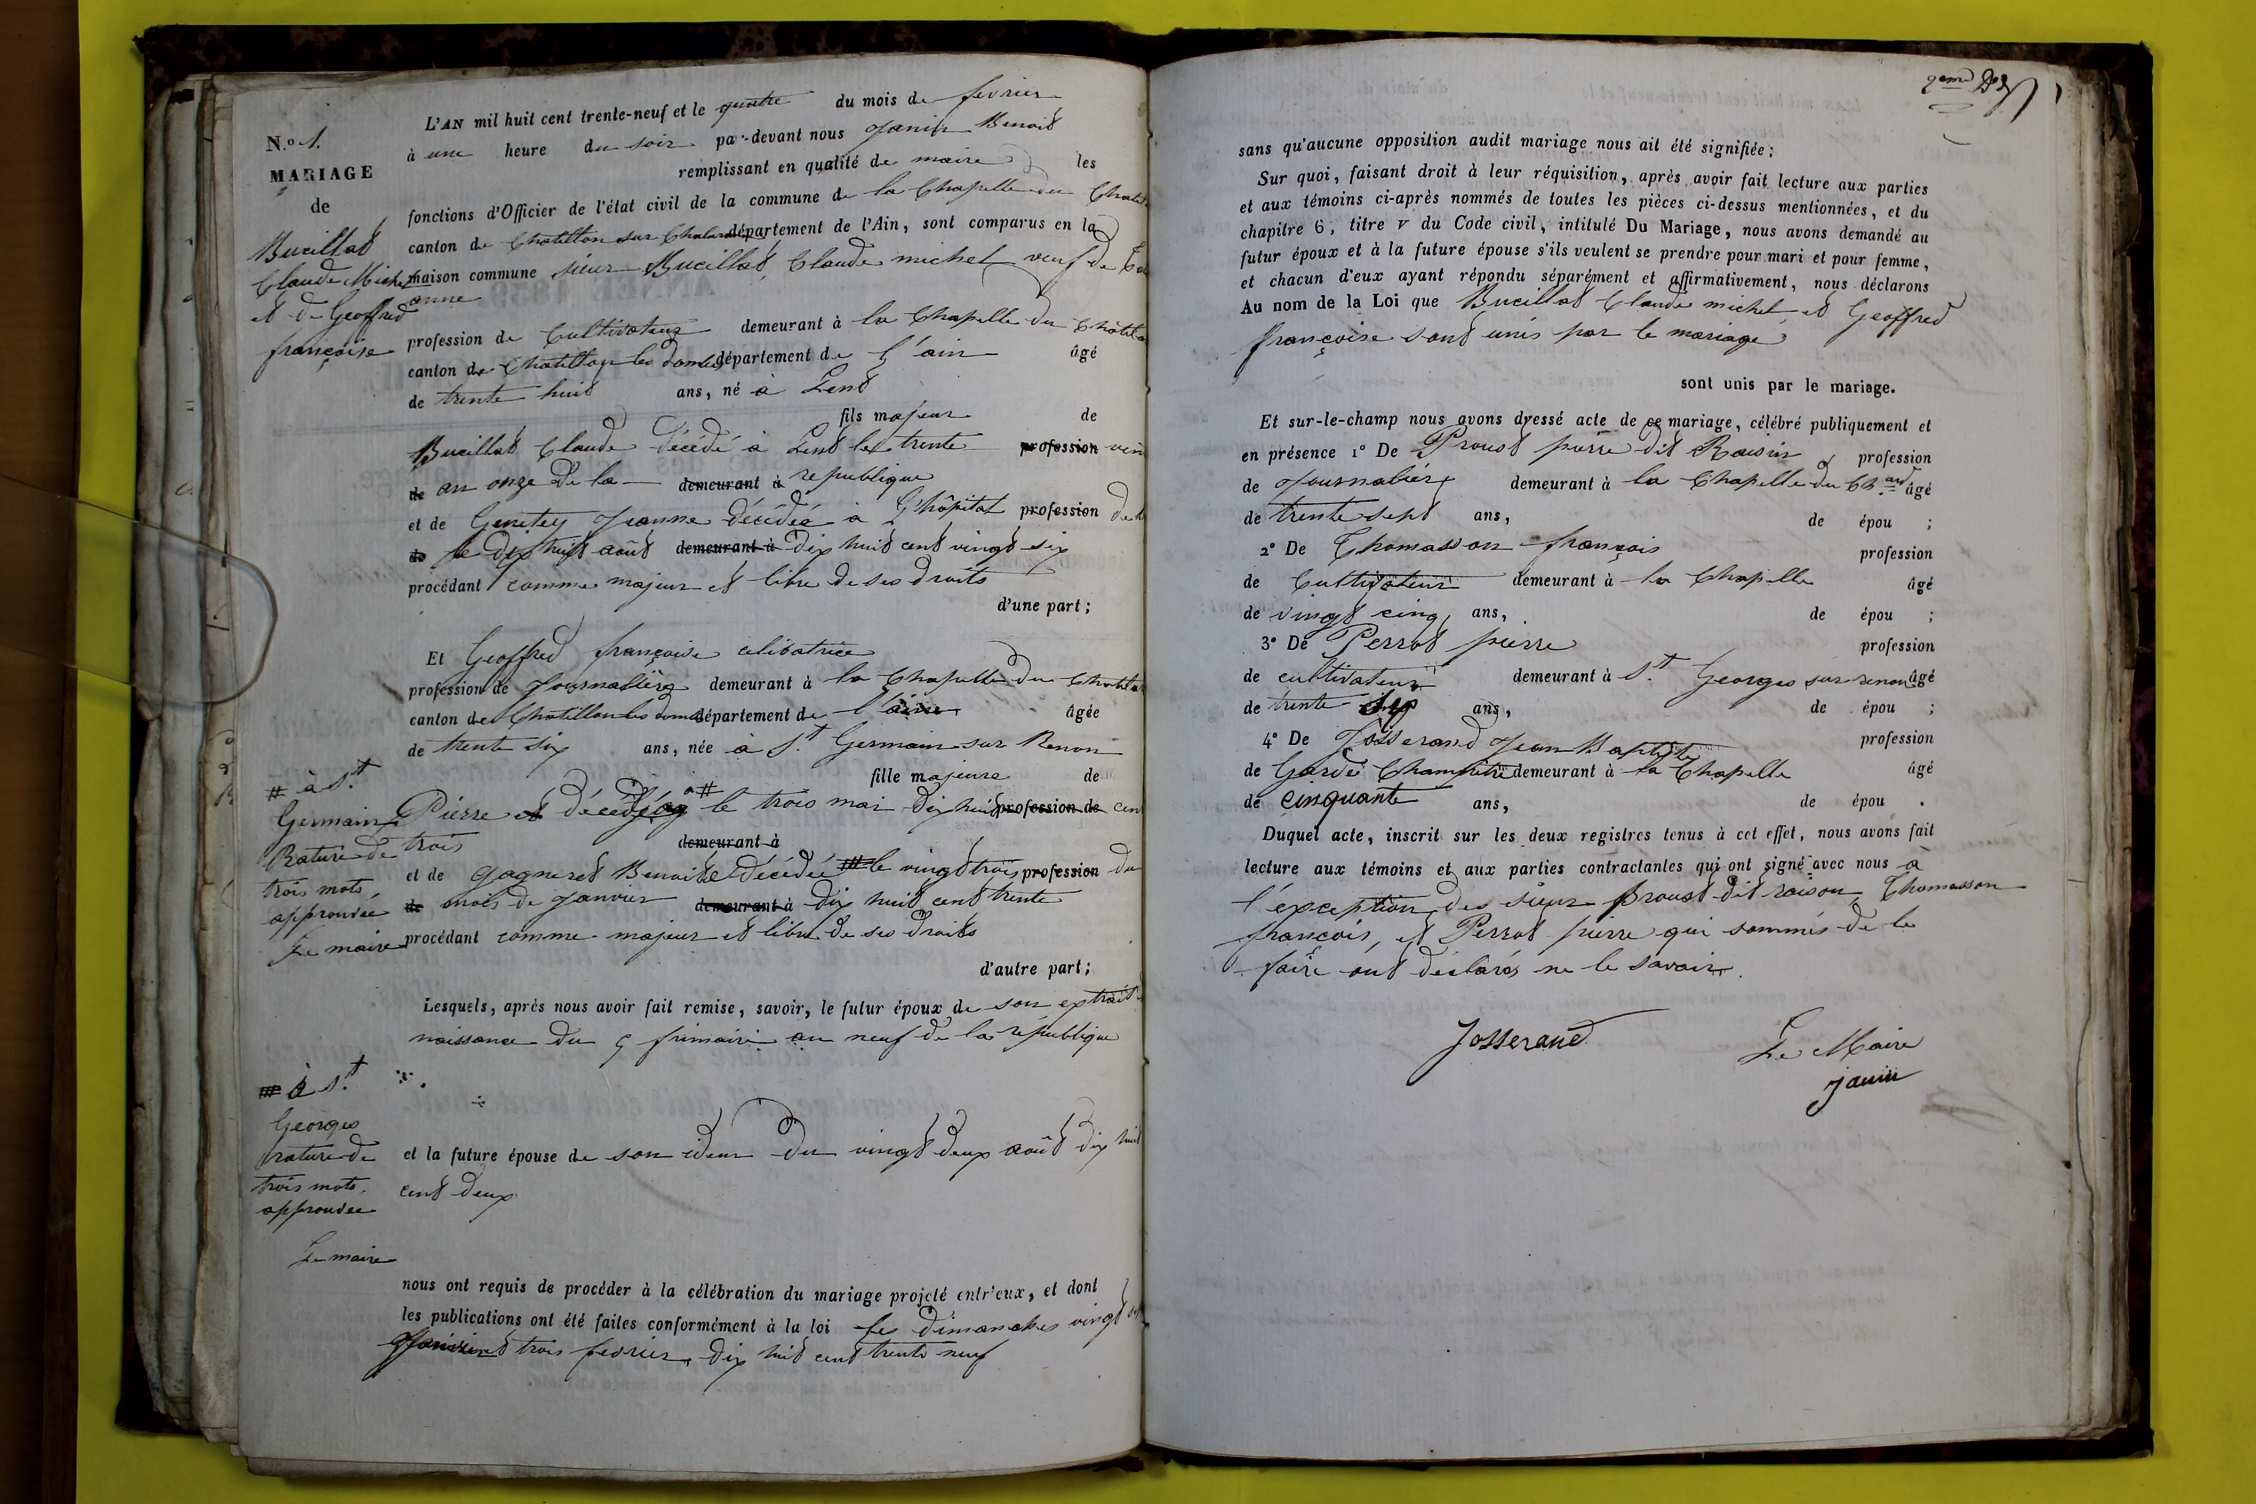 N.º 1.
MARIAGE
de
Bucillat
Claude Michel
et de Geoffred
françoise
L'AN mil huit cent trente-neuf et le quatre du mois de fevrier
à une heure du soir par-devant nous Janin Benoit
remplissant en qualité de maire les
fonctions d'Officier de l'état civil de la commune de la Chapelle du Chatel
canton de Chatillon sur Chalaronne département de l'Ain, sont comparus en la
maison commune sieur Bucillat Claude michel veuf de
anne
profession de Cultivateur demeurant à la Chapelle du Châtela
canton de Chatillon les dombes département de l'ain âgé
de trente huit ans, né à Lent
fils majeur de
Bucillat Claude décédé à Lent le trente profession
de an onze de la demeurant à republique
et de Genetey Jeanne décédée à L'hôpital profession de
de le dix huit août demeurant à dix huit cent vingt six
procédant comme majeur et libre de ses droits
d'une part ;
Et Geoffred françoise celibatrice
profession de Journalière demeurant à la Chapelle du Chatela
canton de Chatillon les dombes département de l'ain âgée
de trente six ans, née à St Germain sur Renon
fille majeure de
Pierre décédé le trois mai dix huit profession de cent
trois demeurant à
et de Gagneret Benoite décédée le vingt trois profession du
de mois de janvier demeurant à dix huit cent trente
procédant comme majeur et libre de ses droits
d'autre part ;
# à St
Germain
Rature de
trois mots
approuvée
Le maire
Lesquels, après nous avoir fait remise, savoir, le futur époux de son extrait
naissance du 5 frimaire an neuf de la république
à St
Georges
rature de
trois mots
approuvée
Le maire
et la future épouse de son idem du vingt deux août dix huit
cent deux
nous ont requis de procéder à la célébration du mariage projeté entr'eux, et dont
les publications ont été faites conformément à la loi les dimanches vingt
Janvier et trois fevrier dix huit cent trente neuf
2eme
sans qu'aucune opposition audit mariage nous ait été signifiée ;
Sur quoi, faisant droit à leur réquisition, après avoir fait lecture aux parties
et aux témoins ci-après nommés de toutes les pièces ci-dessus mentionnées, et du
chapitre 6, titre v du Code civil, intitulé Du Mariage, nous avons demandé au
futur époux et à la future épouse s'ils veulent se prendre pour mari et pour femme,
et chacun d'eux ayant répondu séparément et affirmativement, nous déclarons
Au nom de la Loi que Bucillat Claude michel et Geoffred
françoise sont unis par le mariage
sont unis par le mariage.
Et sur-le-champ nous avons dressé acte de ce mariage, célébré publiquement et
en présence 1° De Proust pierre dit Raisin profession
de Journalier demeurant à la Chapelle du Ch.ard âgé
de trente sept ans, de épou ;
2° De Thomasson françois profession
de Cultivateur demeurant à la Chapelle âgé
de vingt cinq ans, de épou ;
3° De Perrot pierre profession
de cultivateur demeurant à St Georges sur renon âgé
de trente ans, de épou ;
4° De Josserand Jean Baptiste profession
de Garde Champêtre demeurant à la Chapelle âgé
de cinquante ans, de épou .
Duquel acte, inscrit sur les deux registres tenus à cet effet, nous avons fait
lecture aux témoins et aux parties contractantes qui ont signé avec nous à
l'exception des sieur Proust dit raison, Thomasson
françois, et Perrot pierre qui sommés de le
faire ont déclarés ne le savoir.
Josserand
Le Maire
Janin